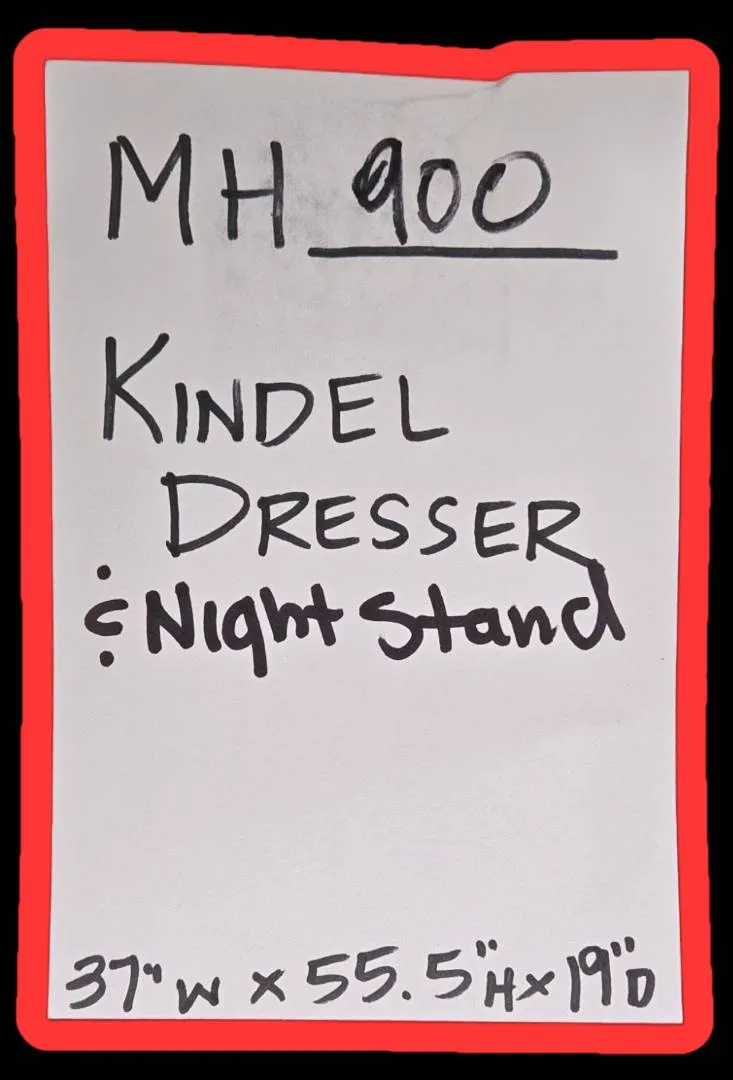 MH 900
KINDEL
DRESSER
& Night Stand
37" W x 55.5" H x 19" D